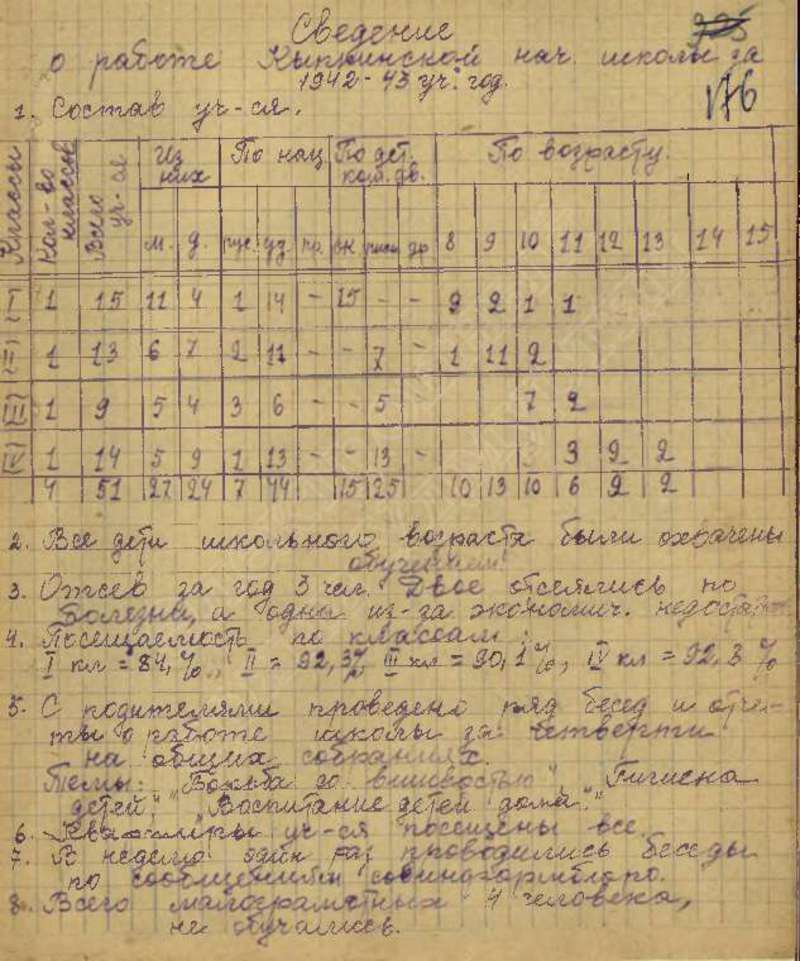 Сведение
о работе Кыпкинской нач. школы за
1942-43 уч. год.
176
1. Состав уч-ся.
Классы Кол-во классов Всего уч-ся Из них По нац По дет. ком. дв. По возрасту.
м. д. рус. уд. пр. ок пион др 8 9 10 11 12 13 14 15
I 1 15 11 4 1 14 - 15 - - 9 2 1 1
II 1 13 6 7 2 11 - - 7 - 1 11 2
III 1 9 5 4 3 6 - - 5 7 2
IV 1 14 5 9 1 13 - - 13 - 3 9 2
4 51 27 24 7 44 15 25 10 13 10 6 9 2
2. Все дети школьного возраста были охвачены
обучением.
3. Отсев за год 3 чел. Двое отсеялись по
болезни, а один из-за экономич.
4. Посещаемость по классам:
I кл = 84,%, II = 92,3%, III кл = 90,1%, IV кл = 92,3%
5. С родителями проведено ряд бесед и отче-
ты о работе школы за четверти
на общих собраниях.
Темы: „Борьба со вшивостью", „Гигиена
детей", „Воспитание детей дома".
6. Квартиры уч-ся посещены все.
7. В неделю один раз проводились беседы
по сообщениям совинформбюро.
8. Всего малограмотных 4 человека,
не обучались.